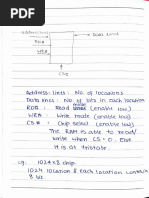 Data lines
RD#
WR#
CS#
Address lines : No. of locations
Data lines : No. of bits in each location
RD# : Read mode (enable low)
WR# : Write mode (enable low)
CS# : Chip select (enable low)
The RAM is able to read/
write when CS = 0. Else
it is at tristate.
eg. 1024 × 8 chip.
1024 location & each location contains
8 bit.